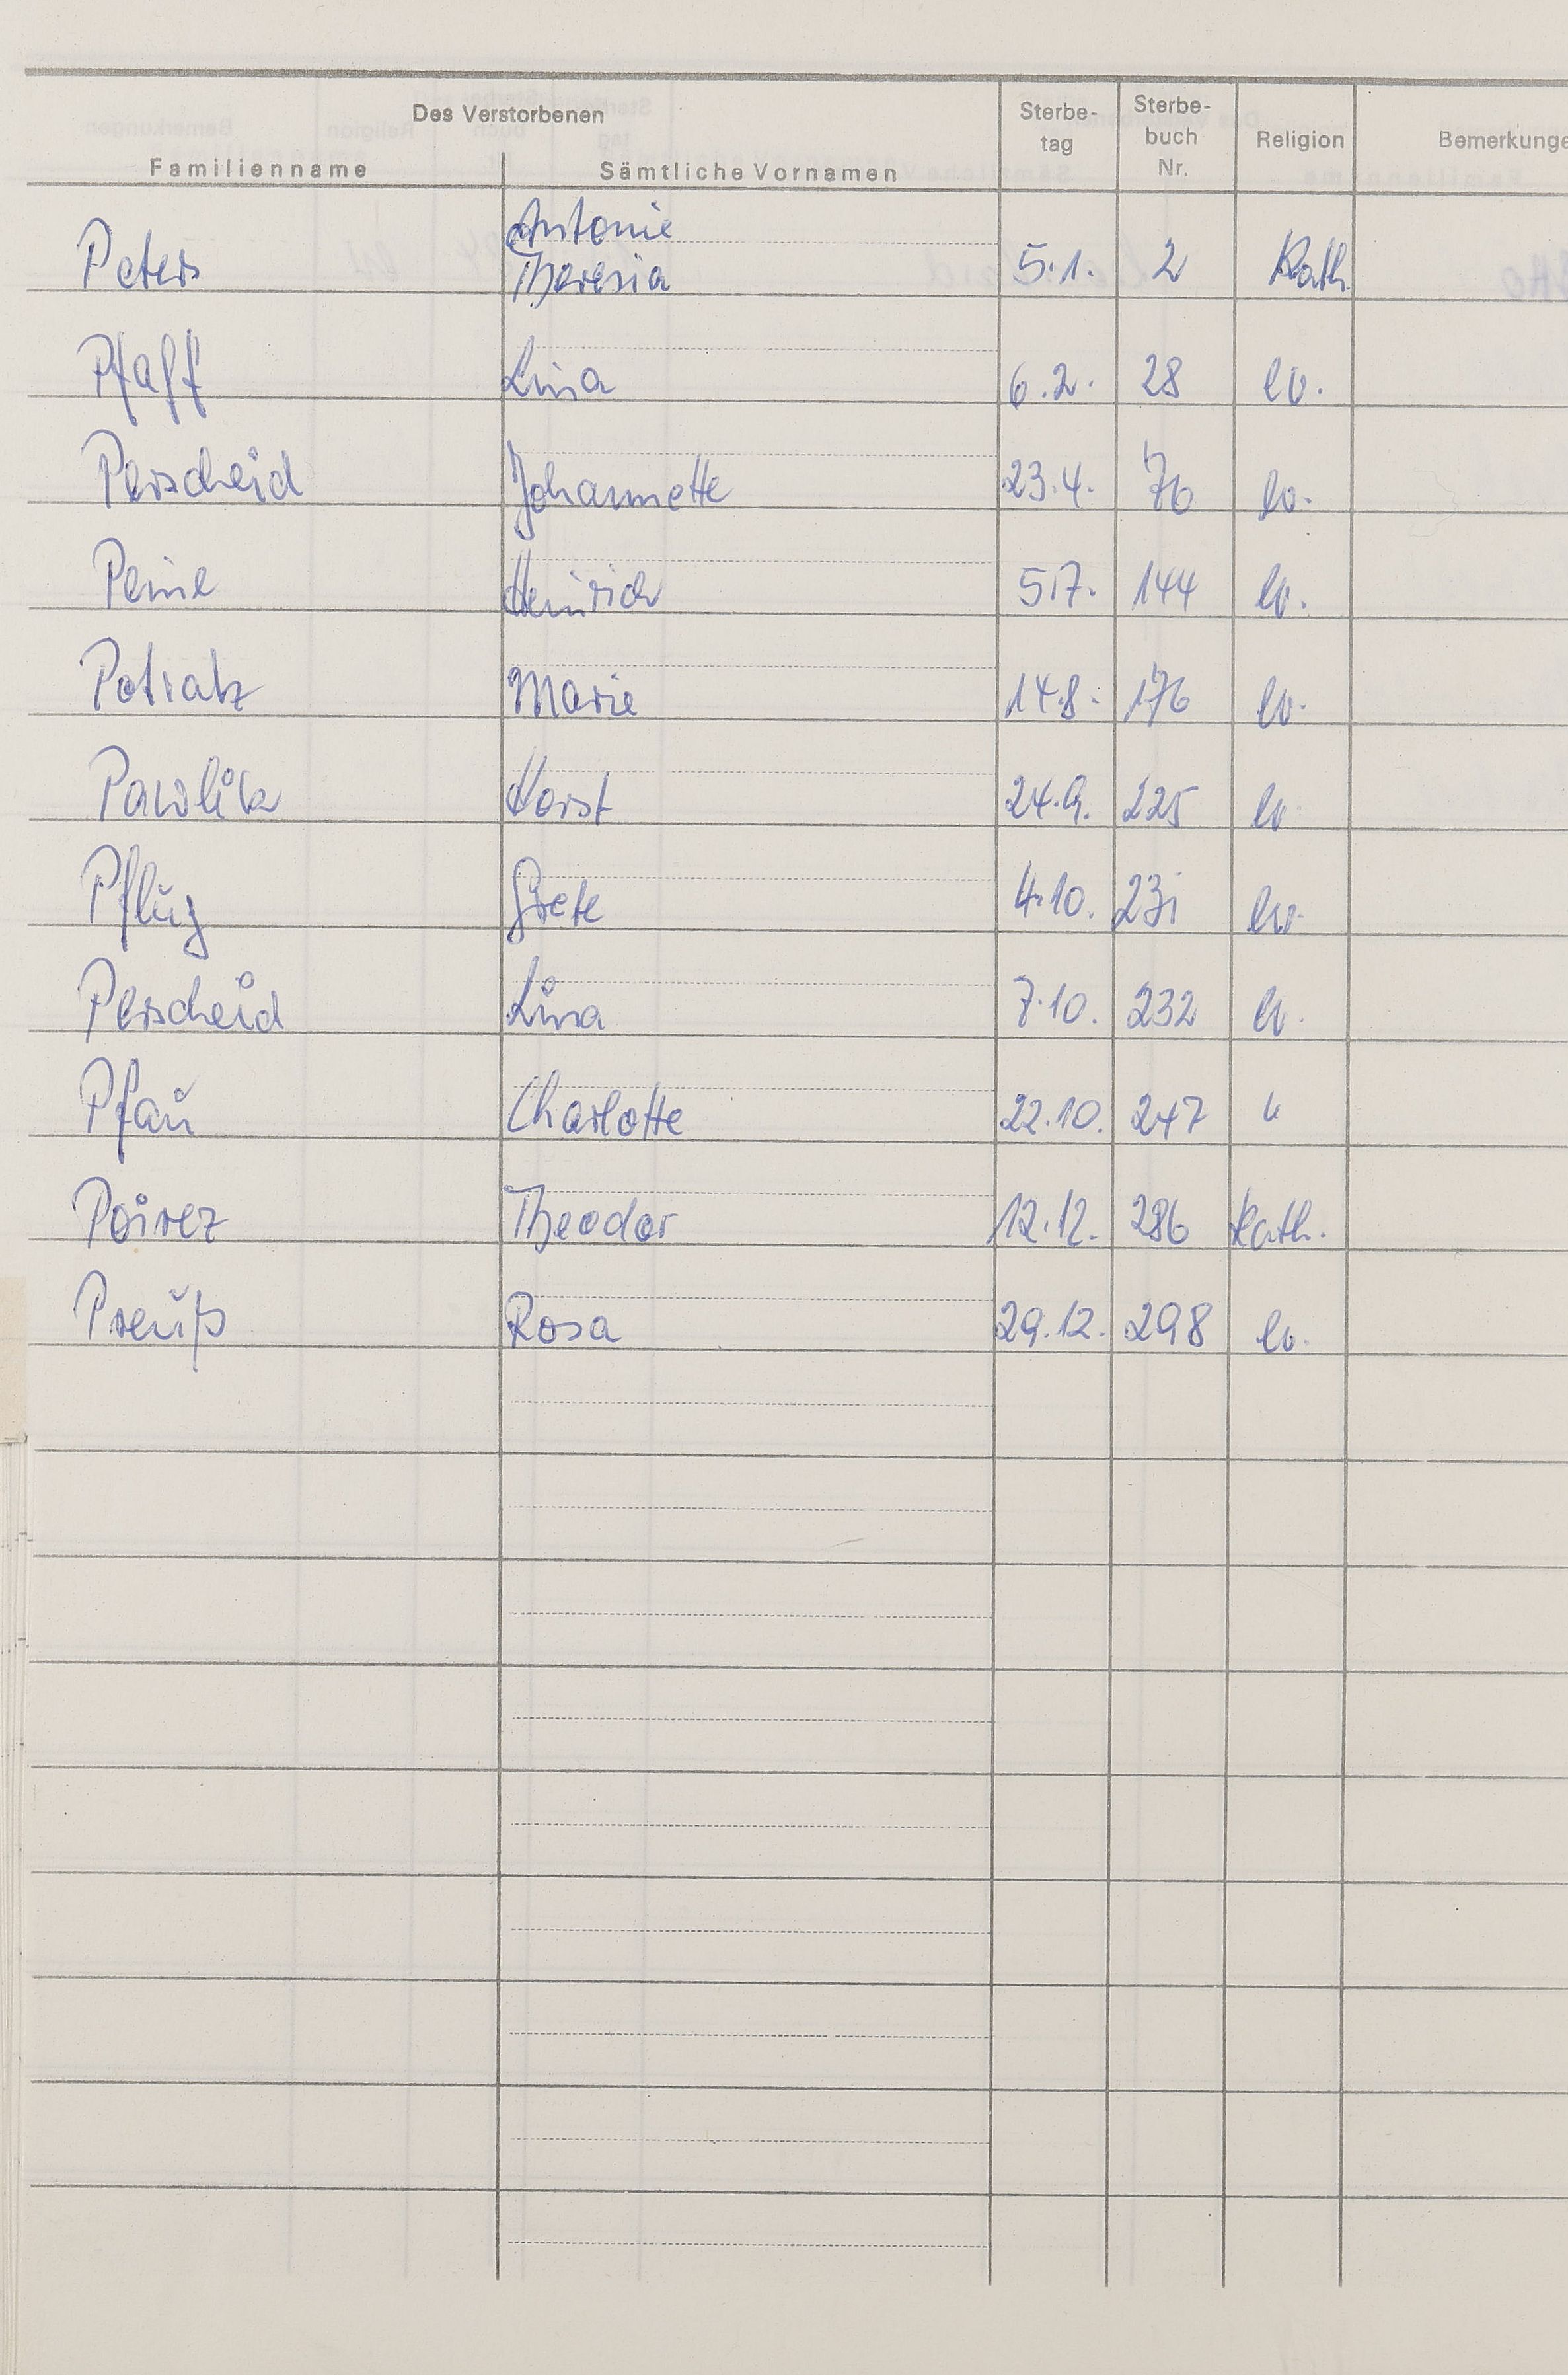 Des Verstorbenen
Familienname Sämtliche Vornamen Sterbe-tag Sterbe-buch Nr. Religion Bemerkunge
Antonie
Peters Theresia 5.1. 2 Kath.
Pfaff Lina 6.2. 28 ev.
Perscheid Johannette 23.4. 76 ev.
Peine Heinrich 5.7. 144 ev.
Potratz Marie 14.8. 176 ev.
Pawlik Horst 24.9. 225 ev.
Pflug Grete 4.10. 231 ev.
Perscheid Lina 7.10. 232 ev.
Pfau Charlotte 22.10. 247 "
Poirez Theodor 12.12. 286 kath.
Preuß Rosa 29.12. 298 ev.